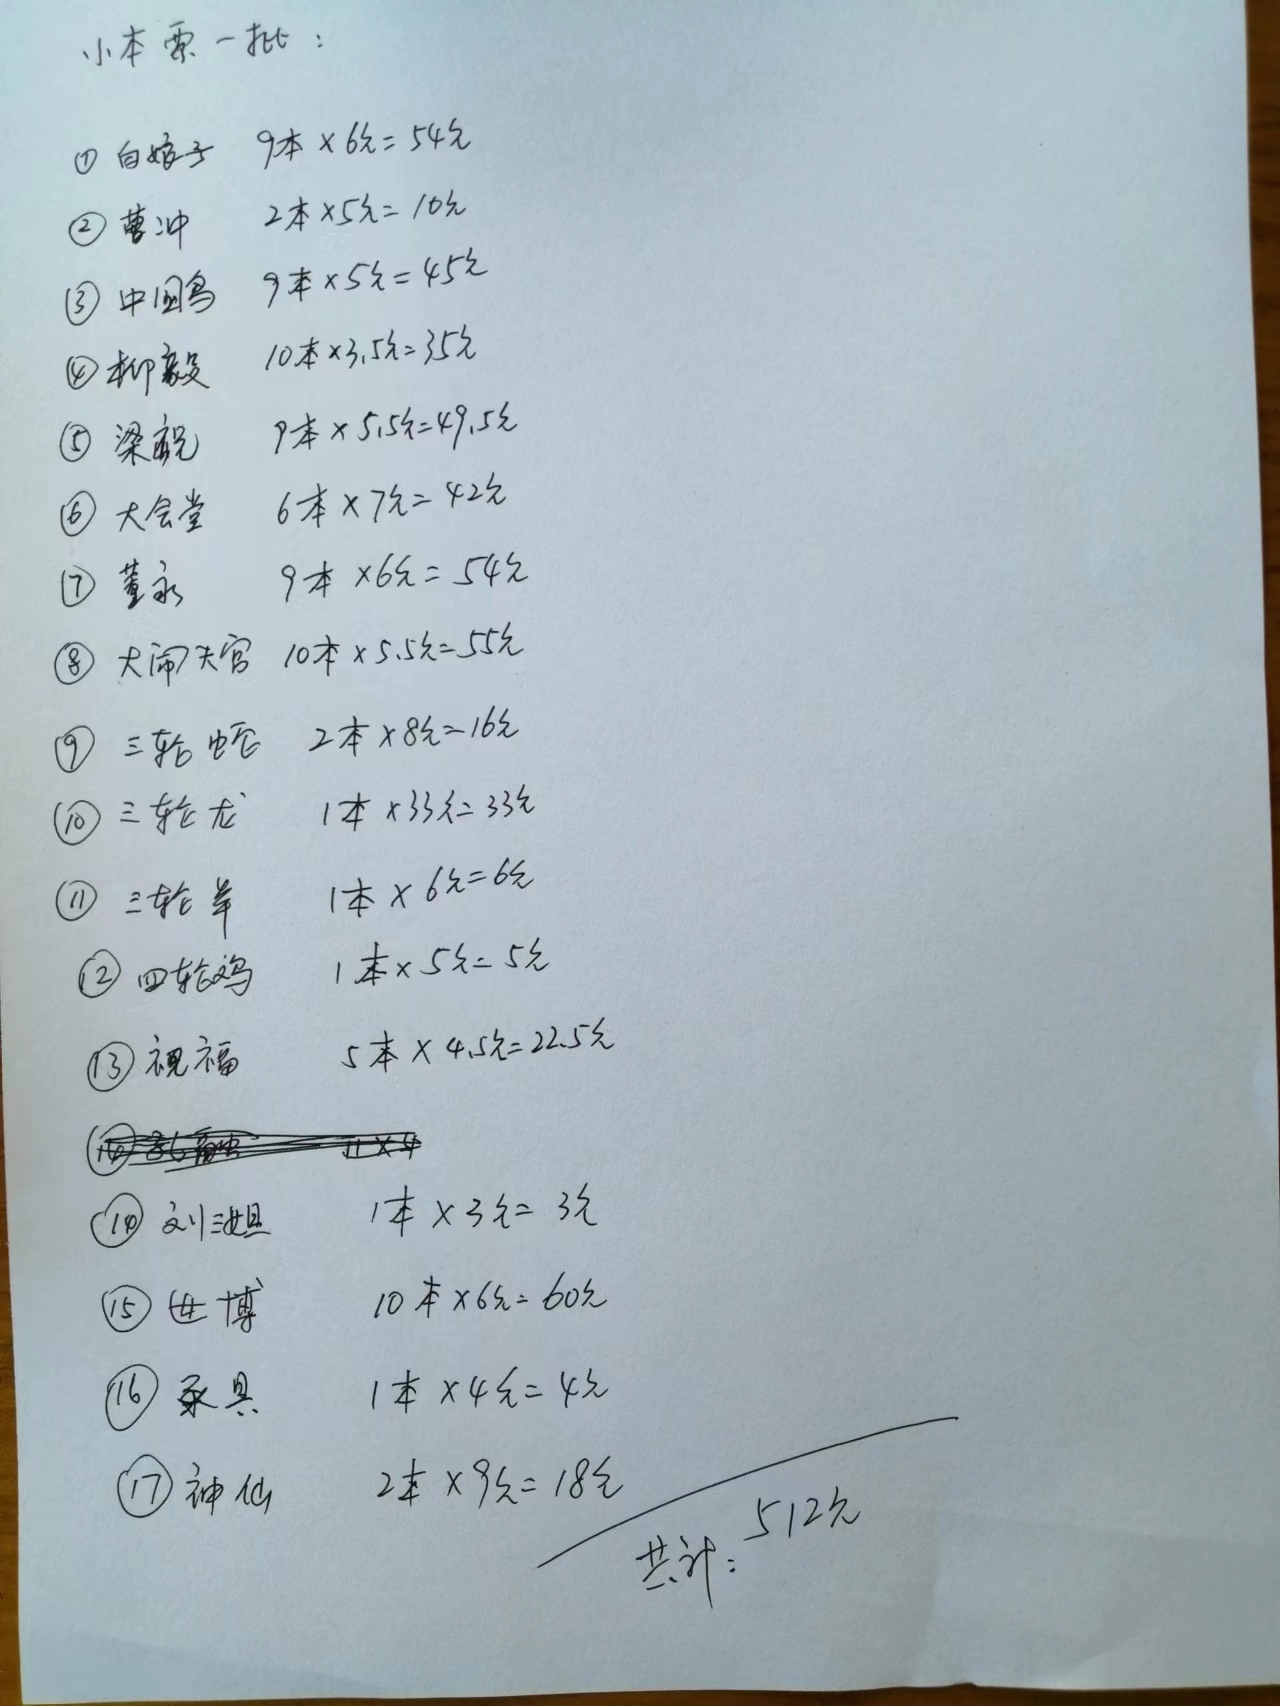 小本票一批：
① 白娘子 9本×6元=54元
② 曹冲 2本×5元=10元
③ 中国鸟 9本×5元=45元
④ 柳毅 10本×3.5元=35元
⑤ 梁祝 9本×5.5元=49.5元
⑥ 大会堂 6本×7元=42元
⑦ 董永 9本×6元=54元
⑧ 大闹天宫 10本×5.5元=55元
⑨ 三轮蛇 2本×8元=16元
⑩ 三轮龙 1本×33元=33元
⑪ 三轮羊 1本×6元=6元
⑫ 四轮鸡 1本×5元=5元
⑬ 祝福 5本×4.5元=22.5元
⑭ 刘三姐 1本×3元=3元
⑮ 世博 10本×6元=60元
⑯ 家具 1本×4元=4元
⑰ 神仙 2本×9元=18元
共计：512元